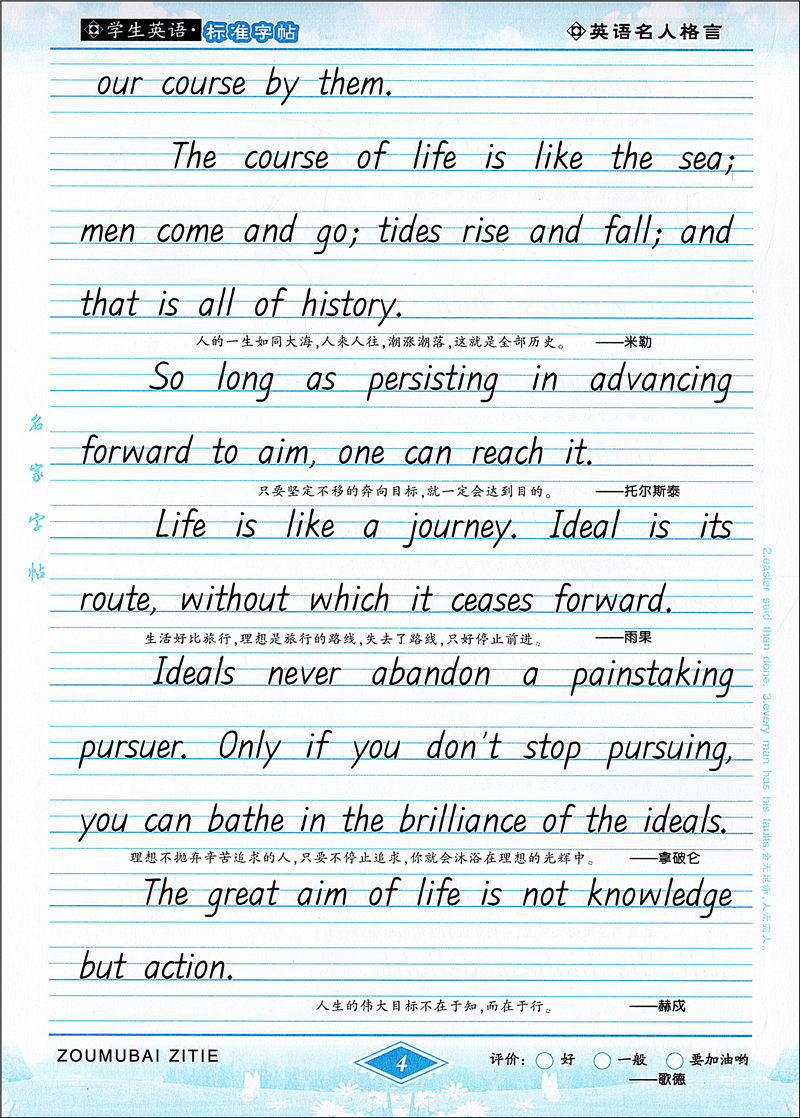 学生英语·标准字帖
英语名人格言
our course by them.
The course of life is like the sea;
men come and go; tides rise and fall; and
that is all of history.
人的一生如同大海,人来人往,潮涨潮落,这就是全部历史。 ——米勒
So long as persisting in advancing
forward to aim, one can reach it.
只要坚定不移的奔向目标,就一定会达到目的。 ——托尔斯泰
Life is like a journey. Ideal is its
route, without which it ceases forward.
生活好比旅行,理想是旅行的路线,失去了路线,只好停止前进。 ——雨果
Ideals never abandon a painstaking
pursuer. Only if you don't stop pursuing,
you can bathe in the brilliance of the ideals.
理想不抛弃辛苦追求的人,只要不停止追求,你就会沐浴在理想的光辉中。 ——拿破仑
The great aim of life is not knowledge
but action.
人生的伟大目标不在于知,而在于行。 ——赫胥
名家字帖
2.easier said than done. 3.every man has his faults.金无足赤,人无完人。
ZOUMUBAI ZITIE
4
评价: 好 一般 要加油哟
——歌德